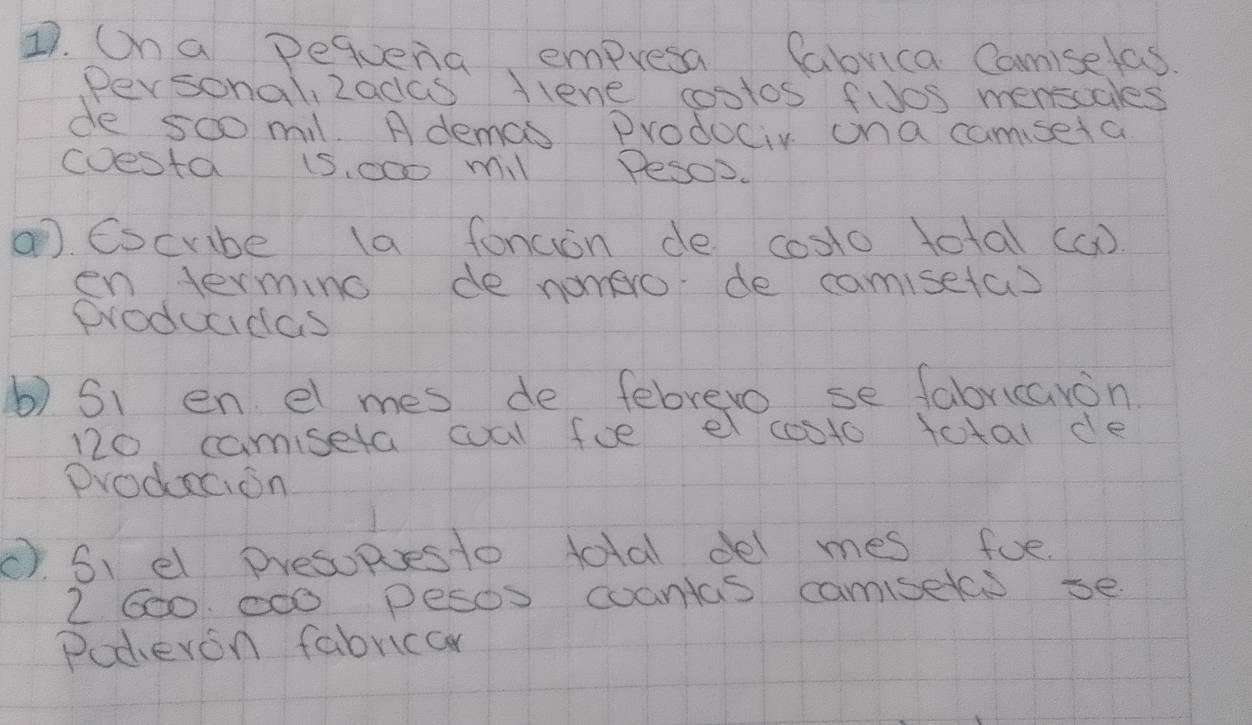 1). Una Pequeña empresa fabrica Camisetas.
Personalizadas tiene costos fijos mensuales
de 500 mil. Ademas Producir una camiseta
cuesta 15.000 mil Pesos.
a). Escribe la función de costo total (C).
en termino de número de camisetas
Producidas
b) Si en el mes de febrero se fabricarón
120 camiseta cual fue el costo total de
Producción
c). Si el Presupuesto total del mes fue.
2 600.000 Pesos cuantas camisetas se
Pudierón fabricar